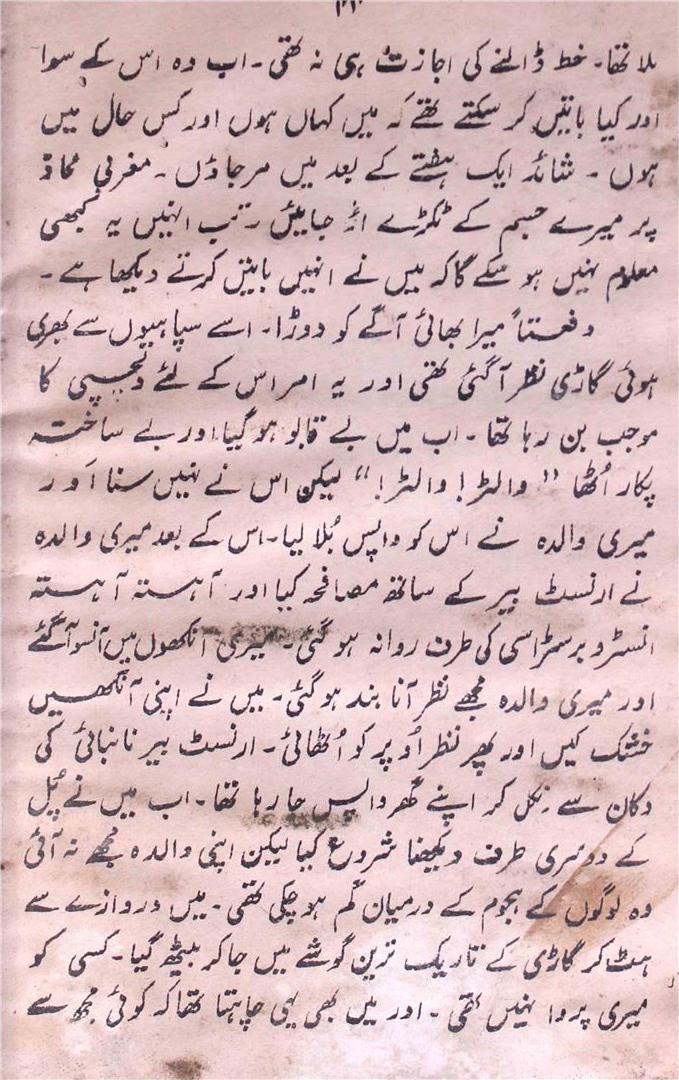 ملا تھا۔ خط ڈالنے کی اجازت ہی نہ تھی۔ اب وہ اس کے سوا
اور کیا باتیں کر سکتے تھے کہ میں کہاں ہوں اور کس حال میں
ہوں ۔ شائد ایک ہفتے کے بعد میں مرجاؤں ۔ مغربی محاذ
پر میرے جسم کے ٹکڑے اڑ جایئں ۔ تب انہیں یہ کبھی
معلوم نہیں ہو سکے گا کہ میں نے انہیں باتیں کرتے دیکھا ہے ۔
دفعتاً میرا بھائی آگے کو دوڑا۔ اسے سپاہیوں سے بھری
ہوئی گاڑی نظر آ گئی تھی اور یہ امر اس کے لئے دلچسپی کا
موجب بن رہا تھا ۔ اب میں بے قابو ہو گیا اور بے ساختہ
پکار اُٹھا " والٹر! والٹر! " لیکن اس نے نہیں سنا اَور
میری والدہ نے اس کو واپس بُلا لیا۔ اس کے بعد میری والدہ
نے ارنسٹ بیر کے ساتھ مصافحہ کیا اور آہستہ آہستہ
کی طرف روانہ ہو گئی۔ میری آنکھوں میں آنسو آ گئے
اور میری والدہ مجھے نظر آنا بند ہو گئی۔ میں نے اپنی آنکھیں
خشک کیں اور پھر نظر اُوپر کو اُٹھائی۔ ارنسٹ بیر نانبائی کی
دکان سے نکل کر اپنے گھر واپس جا رہا تھا۔ اب میں نے پُل
کے دوسری طرف دیکھنا شروع کیا لیکن اپنی والدہ مجھے نہ آئی
وہ لوگوں کے ہجوم کے درمیان گم ہو چکی تھی ۔ میں دروازے سے
ہٹ کر گاڑی کے تاریک ترین گوشے میں جا کر بیٹھ گیا۔ کسی کو
میری پروا نہیں تھی ۔ اور میں بھی یہی چاہتا تھا کہ کوئی مجھ سے